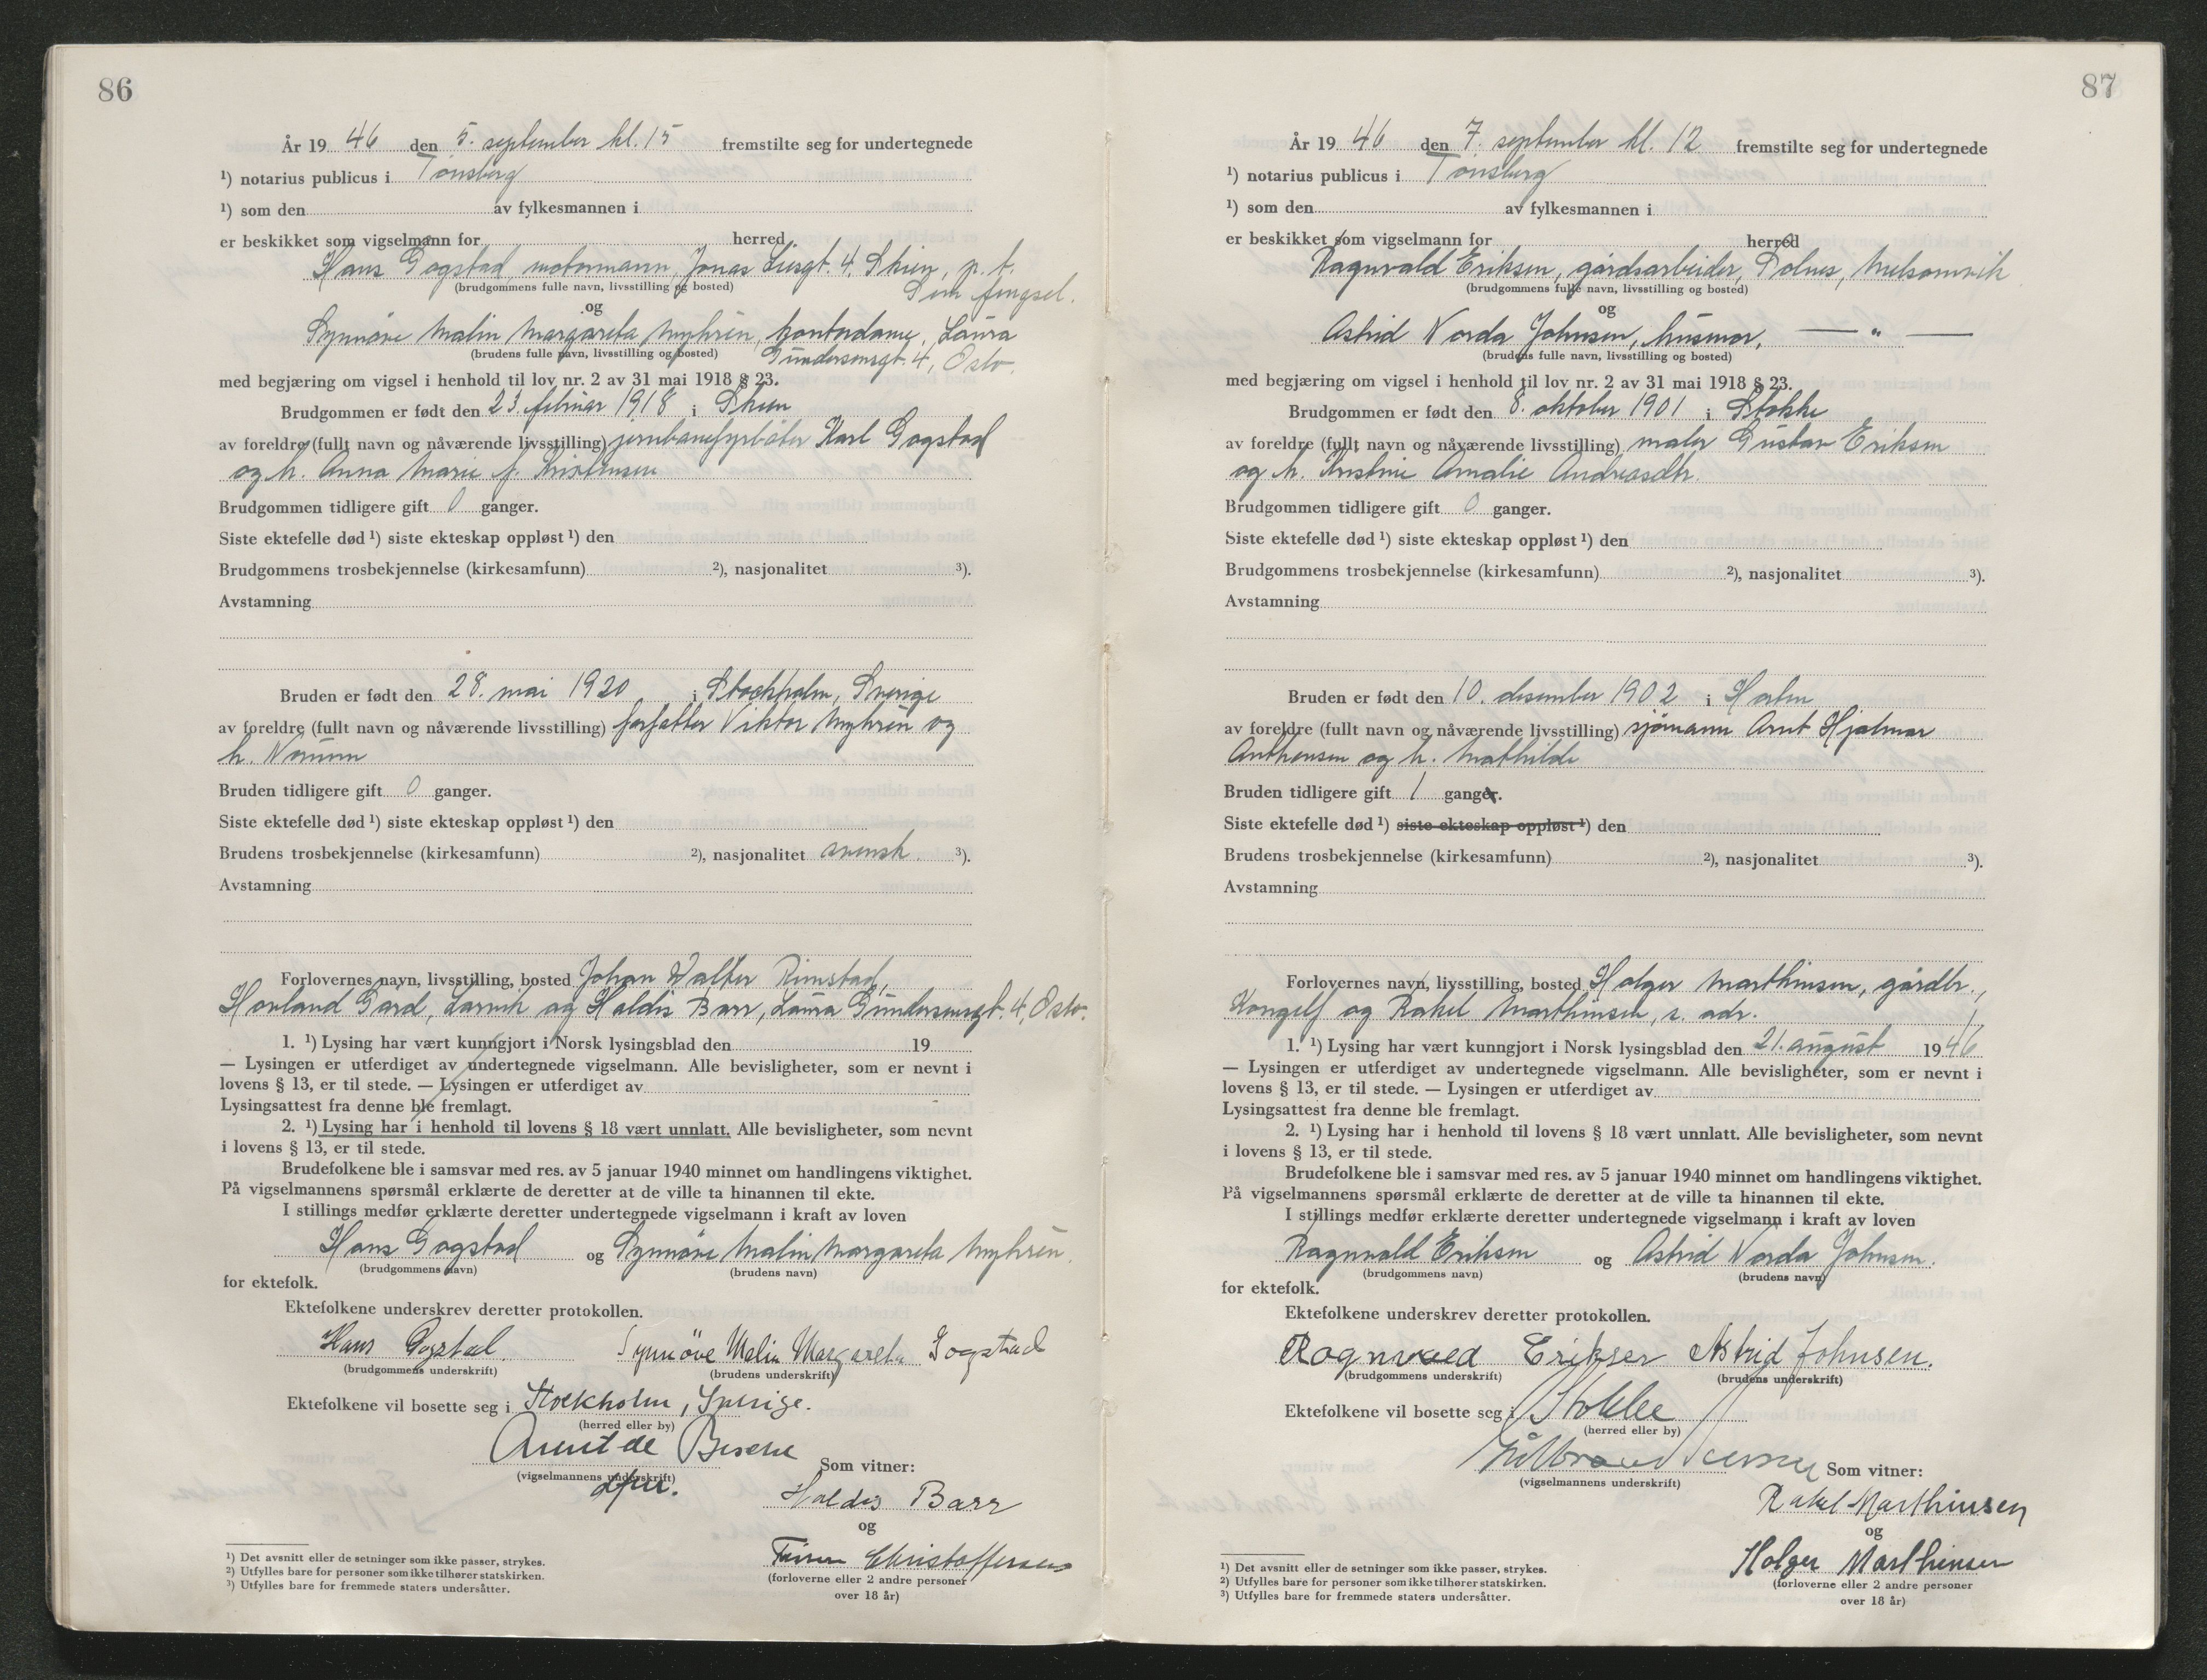 86
År 19 46 den 5. september kl. 15 fremstilte seg for undertegnede
¹) notarius publicus i Tønsberg
¹) som den av fylkesmannen i
er beskikket som vigselmann for herred
Hans Gogstad, motormann, Jonas Liesgt. 4, Skien, p. t.
Sem fengsel.
(brudgommens fulle navn, livsstilling og bosted)
og
Synnøve Malin Margareta Myhrén, kontordame, Laura
Gundersensgt. 4, Oslo.
(brudens fulle navn, livsstilling og bosted)
med begjæring om vigsel i henhold til lov nr. 2 av 31 mai 1918 § 23.
Brudgommen er født den 23. februar 1918 i Skien
av foreldre (fullt navn og nåværende livsstilling) jernbanefyrbøter Karl Gogstad
og h. Anna Marie f. Kristensen
Brudgommen tidligere gift 0 ganger.
Siste ektefelle død ¹) siste ekteskap oppløst ¹) den
Brudgommens trosbekjennelse (kirkesamfunn) ²), nasjonalitet ³).
Avstamning
Bruden er født den 28. mai 1920 i Stockholm, Sverige
av foreldre (fullt navn og nåværende livsstilling) forfatter Viktor Myhrén og
h.
Bruden tidligere gift 0 ganger.
Siste ektefelle død ¹) siste ekteskap oppløst ¹) den
Brudens trosbekjennelse (kirkesamfunn) ²), nasjonalitet svensk ³).
Avstamning
Forlovernes navn, livsstilling, bosted Johan Walter Rimstad,
Hovland Gård, Larvik og Haldis Barr, Laura Gundersensgt. 4, Oslo.
1. ¹) Lysing har vært kunngjort i Norsk lysingsblad den 19
— Lysingen er utferdiget av undertegnede vigselmann. Alle bevisligheter, som er nevnt i
lovens § 13, er til stede. — Lysingen er utferdiget av
Lysingsattest fra denne ble fremlagt.
2. ¹) Lysing har i henhold til lovens § 18 vært unnlatt. Alle bevisligheter, som nevnt
i lovens § 13, er til stede.
Brudefolkene ble i samsvar med res. av 5 januar 1940 minnet om handlingens viktighet.
På vigselmannens spørsmål erklærte de deretter at de ville ta hinannen til ekte.
I stillings medfør erklærte deretter undertegnede vigselmann i kraft av loven
Hans Gogstad og Synnøve Malin Margareta Myhrén
(brudgommens navn) (brudens navn)
for ektefolk.
Ektefolkene underskrev deretter protokollen.
Hans Gogstad. Synnöve Malin Margareta Gogstad
(brudgommens underskrift) (brudens underskrift)
Ektefolkene vil bosette seg i Stockholm, Sverige.
(herred eller by)
Arent de Besche
(vigselmannens underskrift)
Som vitner:
Haldis Barr
og
Christoffersen
(forloverne eller 2 andre personer
over 18 år)
¹) Det avsnitt eller de setninger som ikke passer, strykes.
²) Utfylles bare for personer som ikke tilhører statskirken.
³) Utfylles bare for fremmede staters undersåtter.
87
År 19 46 den 7. september kl. 12 fremstilte seg for undertegnede
¹) notarius publicus i Tønsberg
¹) som den av fylkesmannen i
er beskikket som vigselmann for herred
Ragnvald Eriksen, gårdsarbeider, Solnes, Melsomvik
(brudgommens fulle navn, livsstilling og bosted)
og
Astrid Norda Johnsen, husmor, — " —
(brudens fulle navn, livsstilling og bosted)
med begjæring om vigsel i henhold til lov nr. 2 av 31 mai 1918 § 23.
Brudgommen er født den 8. oktober 1901 i Stokke
av foreldre (fullt navn og nåværende livsstilling) maler Gustav Eriksen
og h. Kristine Amalie Andreasdtr.
Brudgommen tidligere gift 0 ganger.
Siste ektefelle død ¹) siste ekteskap oppløst ¹) den
Brudgommens trosbekjennelse (kirkesamfunn) ²), nasjonalitet ³).
Avstamning
Bruden er født den 10. desember 1902 i Horten
av foreldre (fullt navn og nåværende livsstilling) sjømann Arnt Hjalmar
Anthonsen og h. Mathilde
Bruden tidligere gift 1 ganger.
Siste ektefelle død ¹) siste ekteskap oppløst ¹) den
Brudens trosbekjennelse (kirkesamfunn) ²), nasjonalitet ³).
Avstamning
Forlovernes navn, livsstilling, bosted Holger Marthinsen, gårdbr.,
og Rakel Marthinsen, s. adr.
1. ¹) Lysing har vært kunngjort i Norsk lysingsblad den 21. august 1946
— Lysingen er utferdiget av undertegnede vigselmann. Alle bevisligheter, som er nevnt i
lovens § 13, er til stede. — Lysingen er utferdiget av
Lysingsattest fra denne ble fremlagt.
2. ¹) Lysing har i henhold til lovens § 18 vært unnlatt. Alle bevisligheter, som nevnt
i lovens § 13, er til stede.
Brudefolkene ble i samsvar med res. av 5 januar 1940 minnet om handlingens viktighet.
På vigselmannens spørsmål erklærte de deretter at de ville ta hinannen til ekte.
I stillings medfør erklærte deretter undertegnede vigselmann i kraft av loven
Ragnvald Eriksen og Astrid Norda Johnsen.
(brudgommens navn) (brudens navn)
for ektefolk.
Ektefolkene underskrev deretter protokollen.
Ragnvald Eriksen Astrid Johnsen.
(brudgommens underskrift) (brudens underskrift)
Ektefolkene vil bosette seg i Stokke
(herred eller by)
(vigselmannens underskrift)
Som vitner:
Rakel Marthinsen
og
Holger Marthinsen
(forloverne eller 2 andre personer
over 18 år)
¹) Det avsnitt eller de setninger som ikke passer, strykes.
²) Utfylles bare for personer som ikke tilhører statskirken.
³) Utfylles bare for fremmede staters undersåtter.